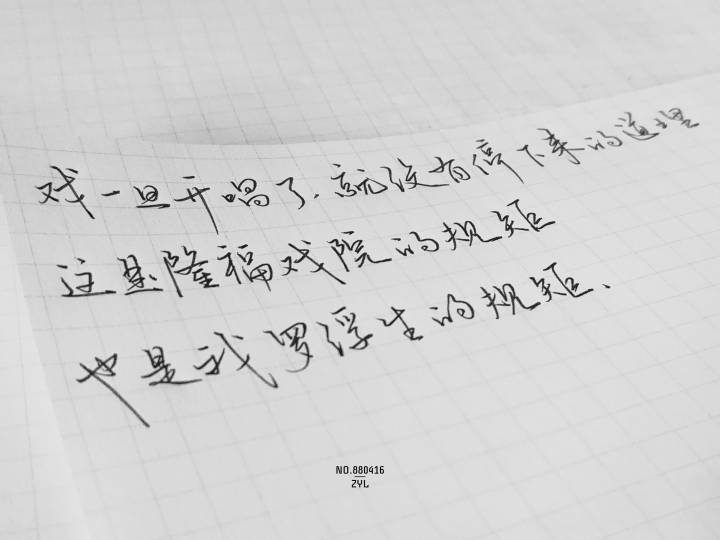 戏一旦开唱了.就没有停下来的道理
这是隆福戏院的规矩
也是我罗浮生的规矩、
NO.880416
ZYL